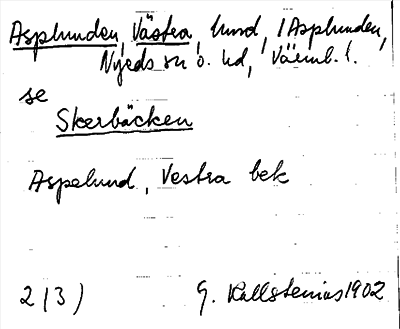 Asplunden, Västra, lund, i Asplunden,
Nyeds sn o. hd, Värml. l.
se
Skerbäcken
Aspelund, Vestra bek
2(3) G. Kallstenius 1902